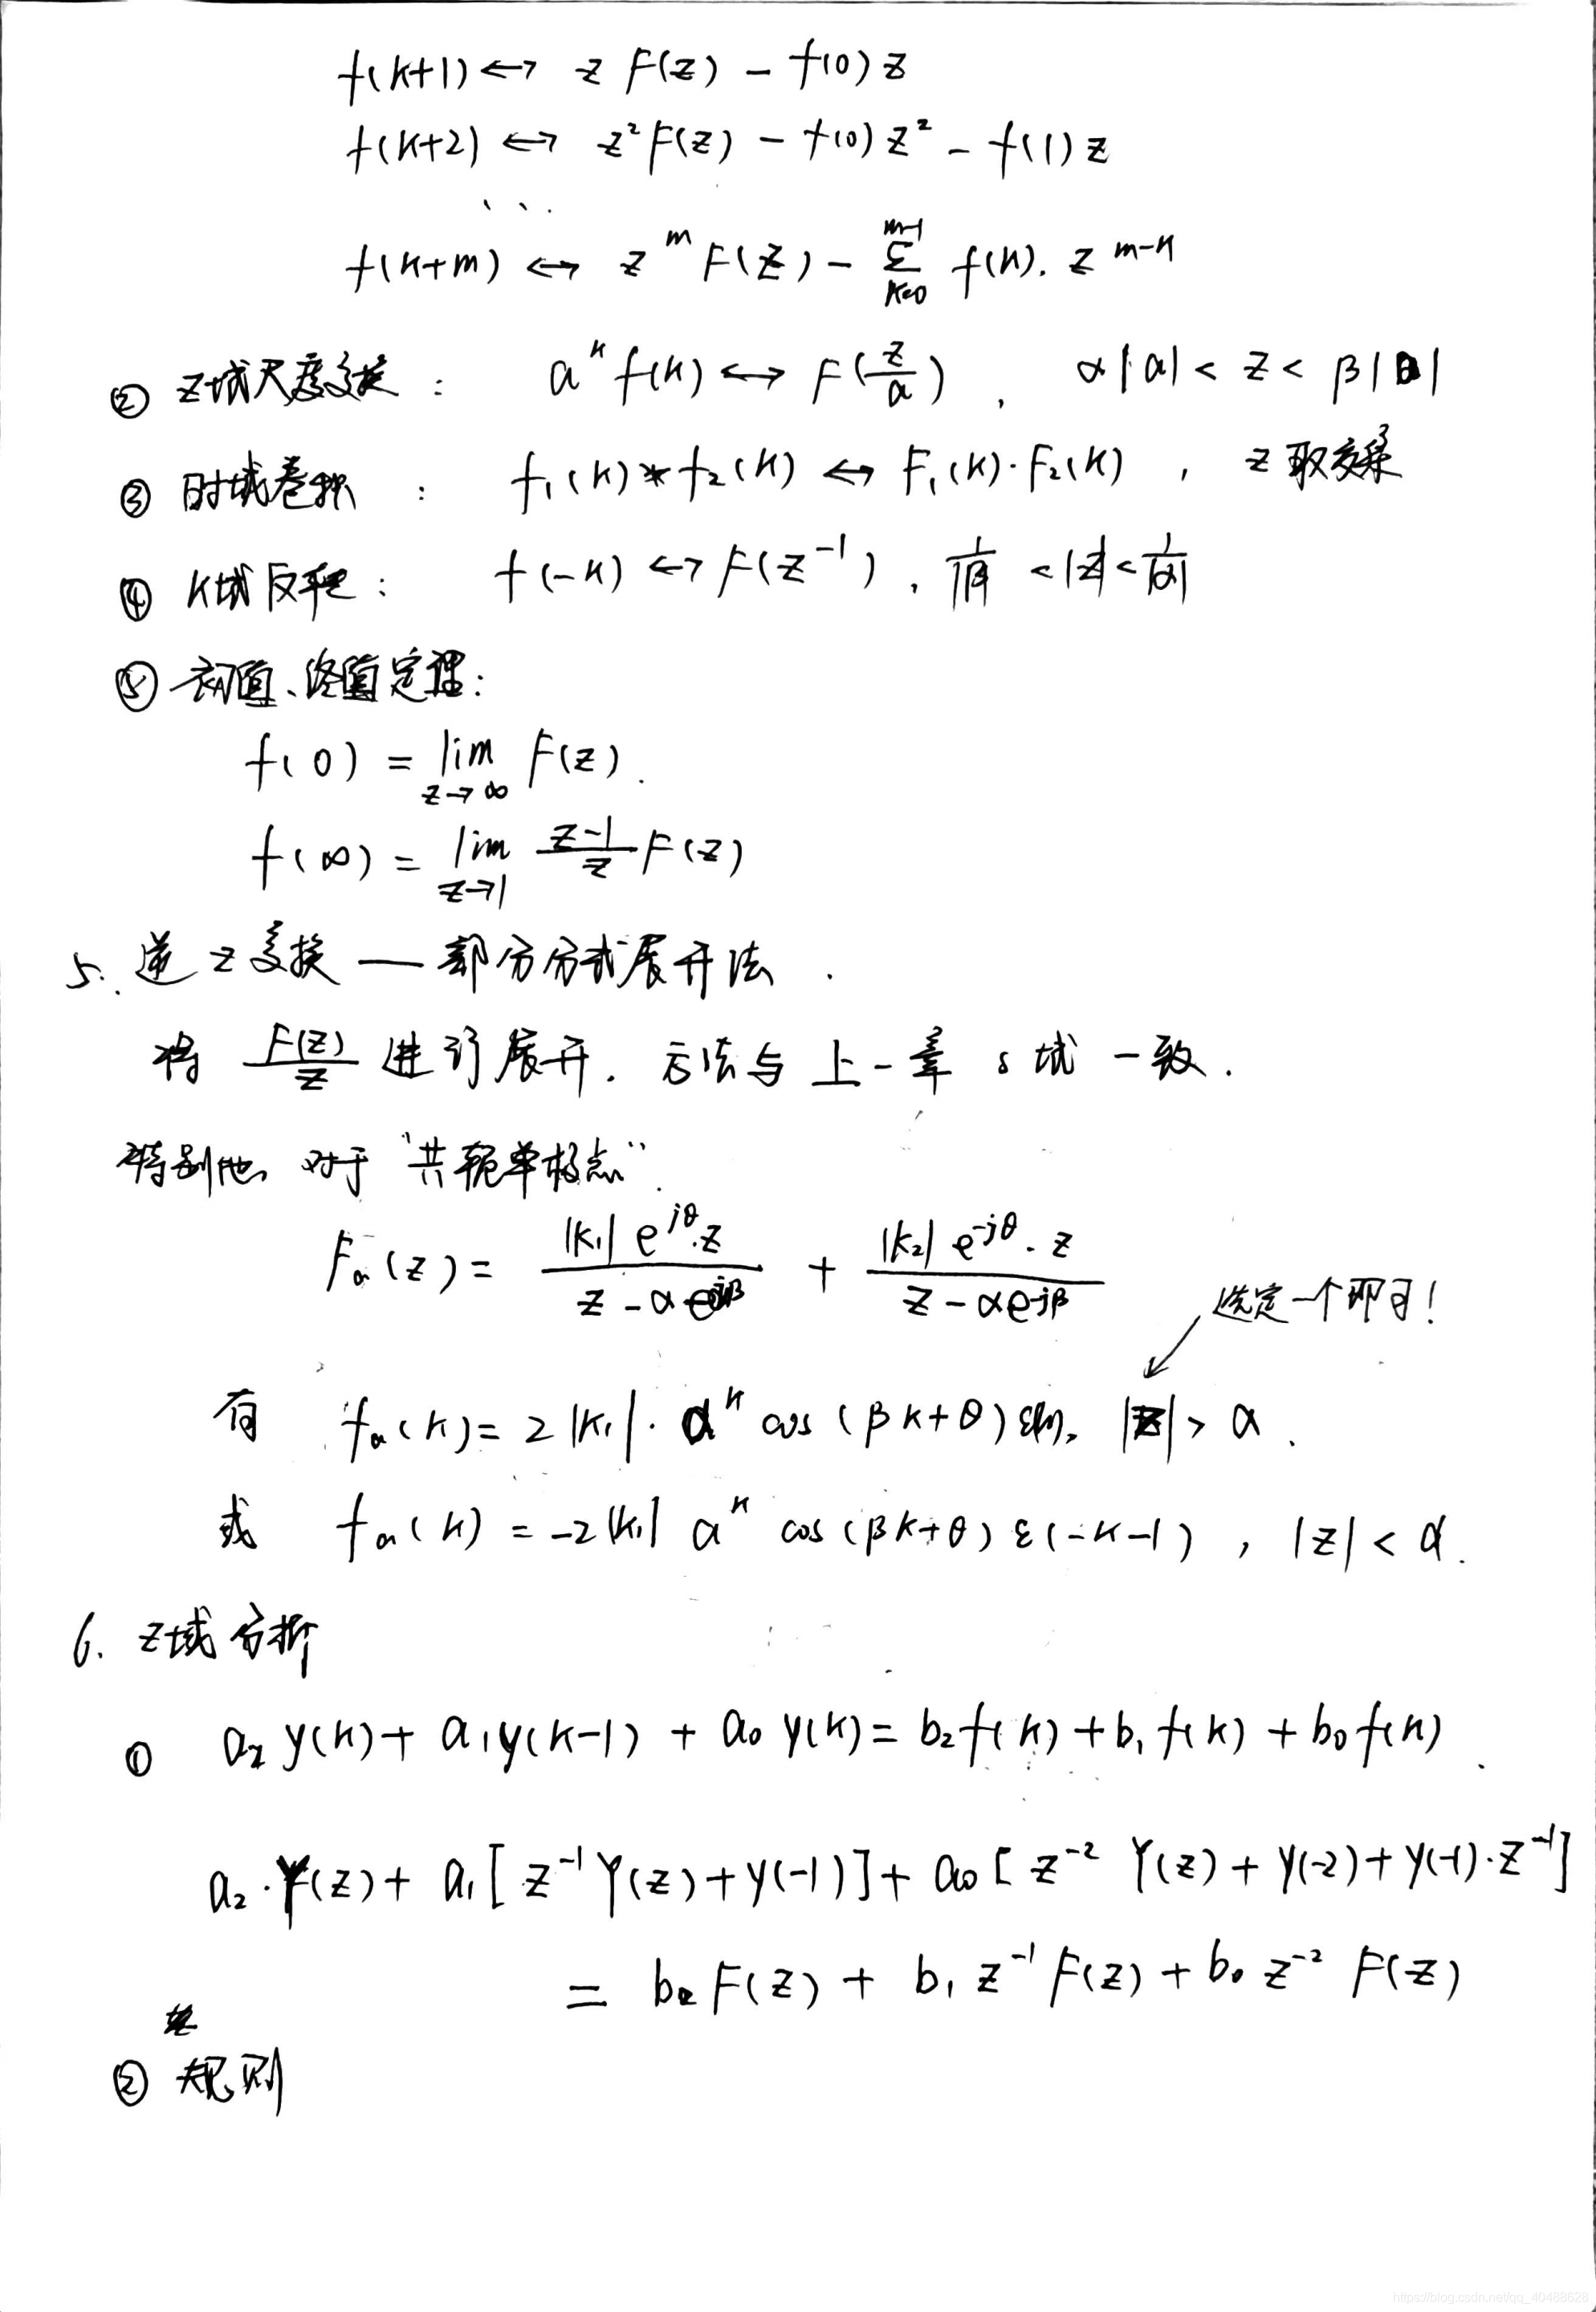 f(k+1) ↔ z F(z) - f(0) z
f(k+2) ↔ z² F(z) - f(0) z² - f(1) z
...
f(k+m) ↔ z^m F(z) - Σ_{k=0}^{m-1} f(k). z^{m-k}
② Z域尺度变换： a^k f(k) ↔ F(z/a) , α|a| < z < β|a|
③ 时域卷积 : f₁(k)*f₂(k) ↔ F₁(k)·F₂(k) , z取交集
④ K域反转： f(-k) ↔ F(z⁻¹) , 1/|β| < |z| < 1/|α|
⑤ 初值、终值定理：
f(0) = lim_{z→∞} F(z).
f(∞) = lim_{z→1} (z-1)/z F(z)
5. 逆z变换 — 部分分式展开法.
将 F(z)/z 进行展开. 方法与上一章 s域一致.
特别地, 对于“共轭单极点”.
Fa(z) = |k₁| e^{jθ}·z / (z - αe^{jβ}) + |k₂| e^{-jθ}·z / (z - αe^{-jβ})
选定一个即可！
有 fa(k) = 2|k₁|·α^k cos(βk+θ) ε(k), |z| > α.
或 fa(k) = -2|k₁| α^k cos(βk+θ) ε(-k-1) , |z| < α.
6. z域分析
① a₂ y(k) + a₁y(k-1) + a₀ y(k) = b₂f(k) + b₁f(k) + b₀f(k).
a₂·Y(z) + a₁[z⁻¹Y(z) + y(-1)] + a₀[z⁻² Y(z) + y(-2) + y(-1)·z⁻¹]
= b₂F(z) + b₁ z⁻¹F(z) + b₀ z⁻² F(z)
② 规则
https://blog.csdn.net/qq_40488628